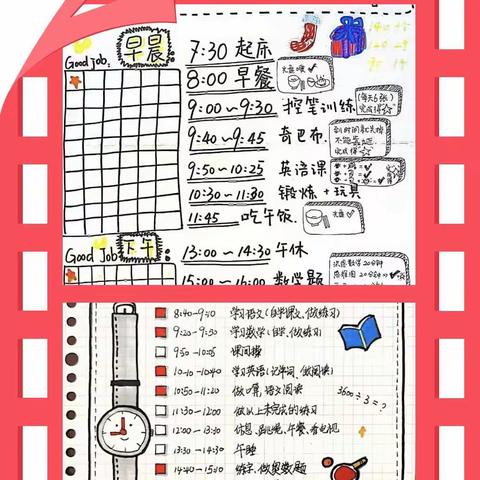 Good job.
早晨
7:30 起床
8:00 早餐
光盘
9:00~9:30 控笔训练
(每天6张)
完成得☆
9:40~9:45 奇巴布.
到时间就关掉
不能
完成得☆
9:50~10:25 英语课
10:30~11:30 锻炼+玩具
11:45 吃午饭.
光盘✓
Good Job
下午:
13:00~14:30 午休
15:00~16:00 数学题
20分钟
思维图 20分钟
8:40-9:10 学习语文(自学课文,做练习)
9:20-9:50 学习数学(自学,做练习)
9:50-10:05 课间操
10:10-10:40 学习英语(记单词,做阅读)
10:50-11:20 做口算,语文阅读
11:30-12:00 做以上未完成的练习
12:00-13:30 休息、跳绳、午餐、看电视
13:30-14:30 午睡
14:40-15:10 练字,做奥数题
3600÷3=?